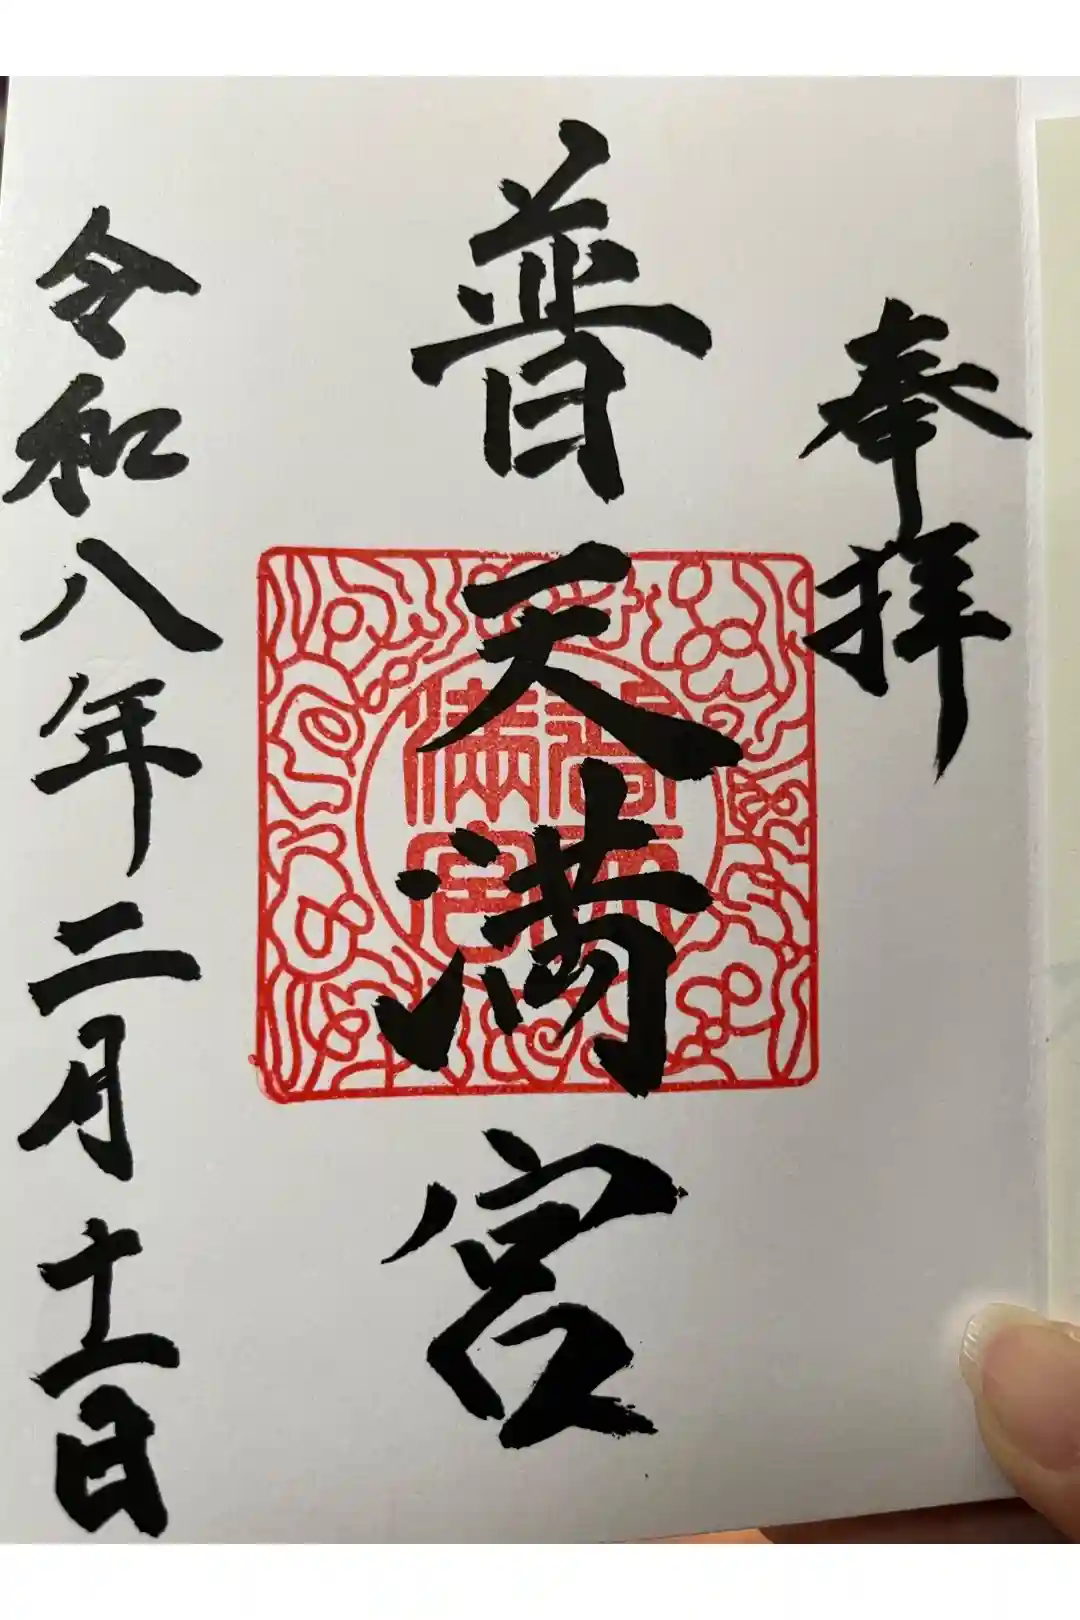 奉拝
普天満宮
令和八年二月十一日